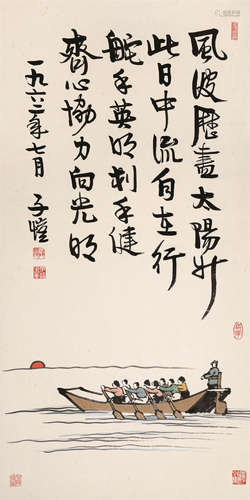 風波歷盡太陽升
此日中流自在行
舵手英明划手健
齊心協力向光明
一九六二年七月 子愷